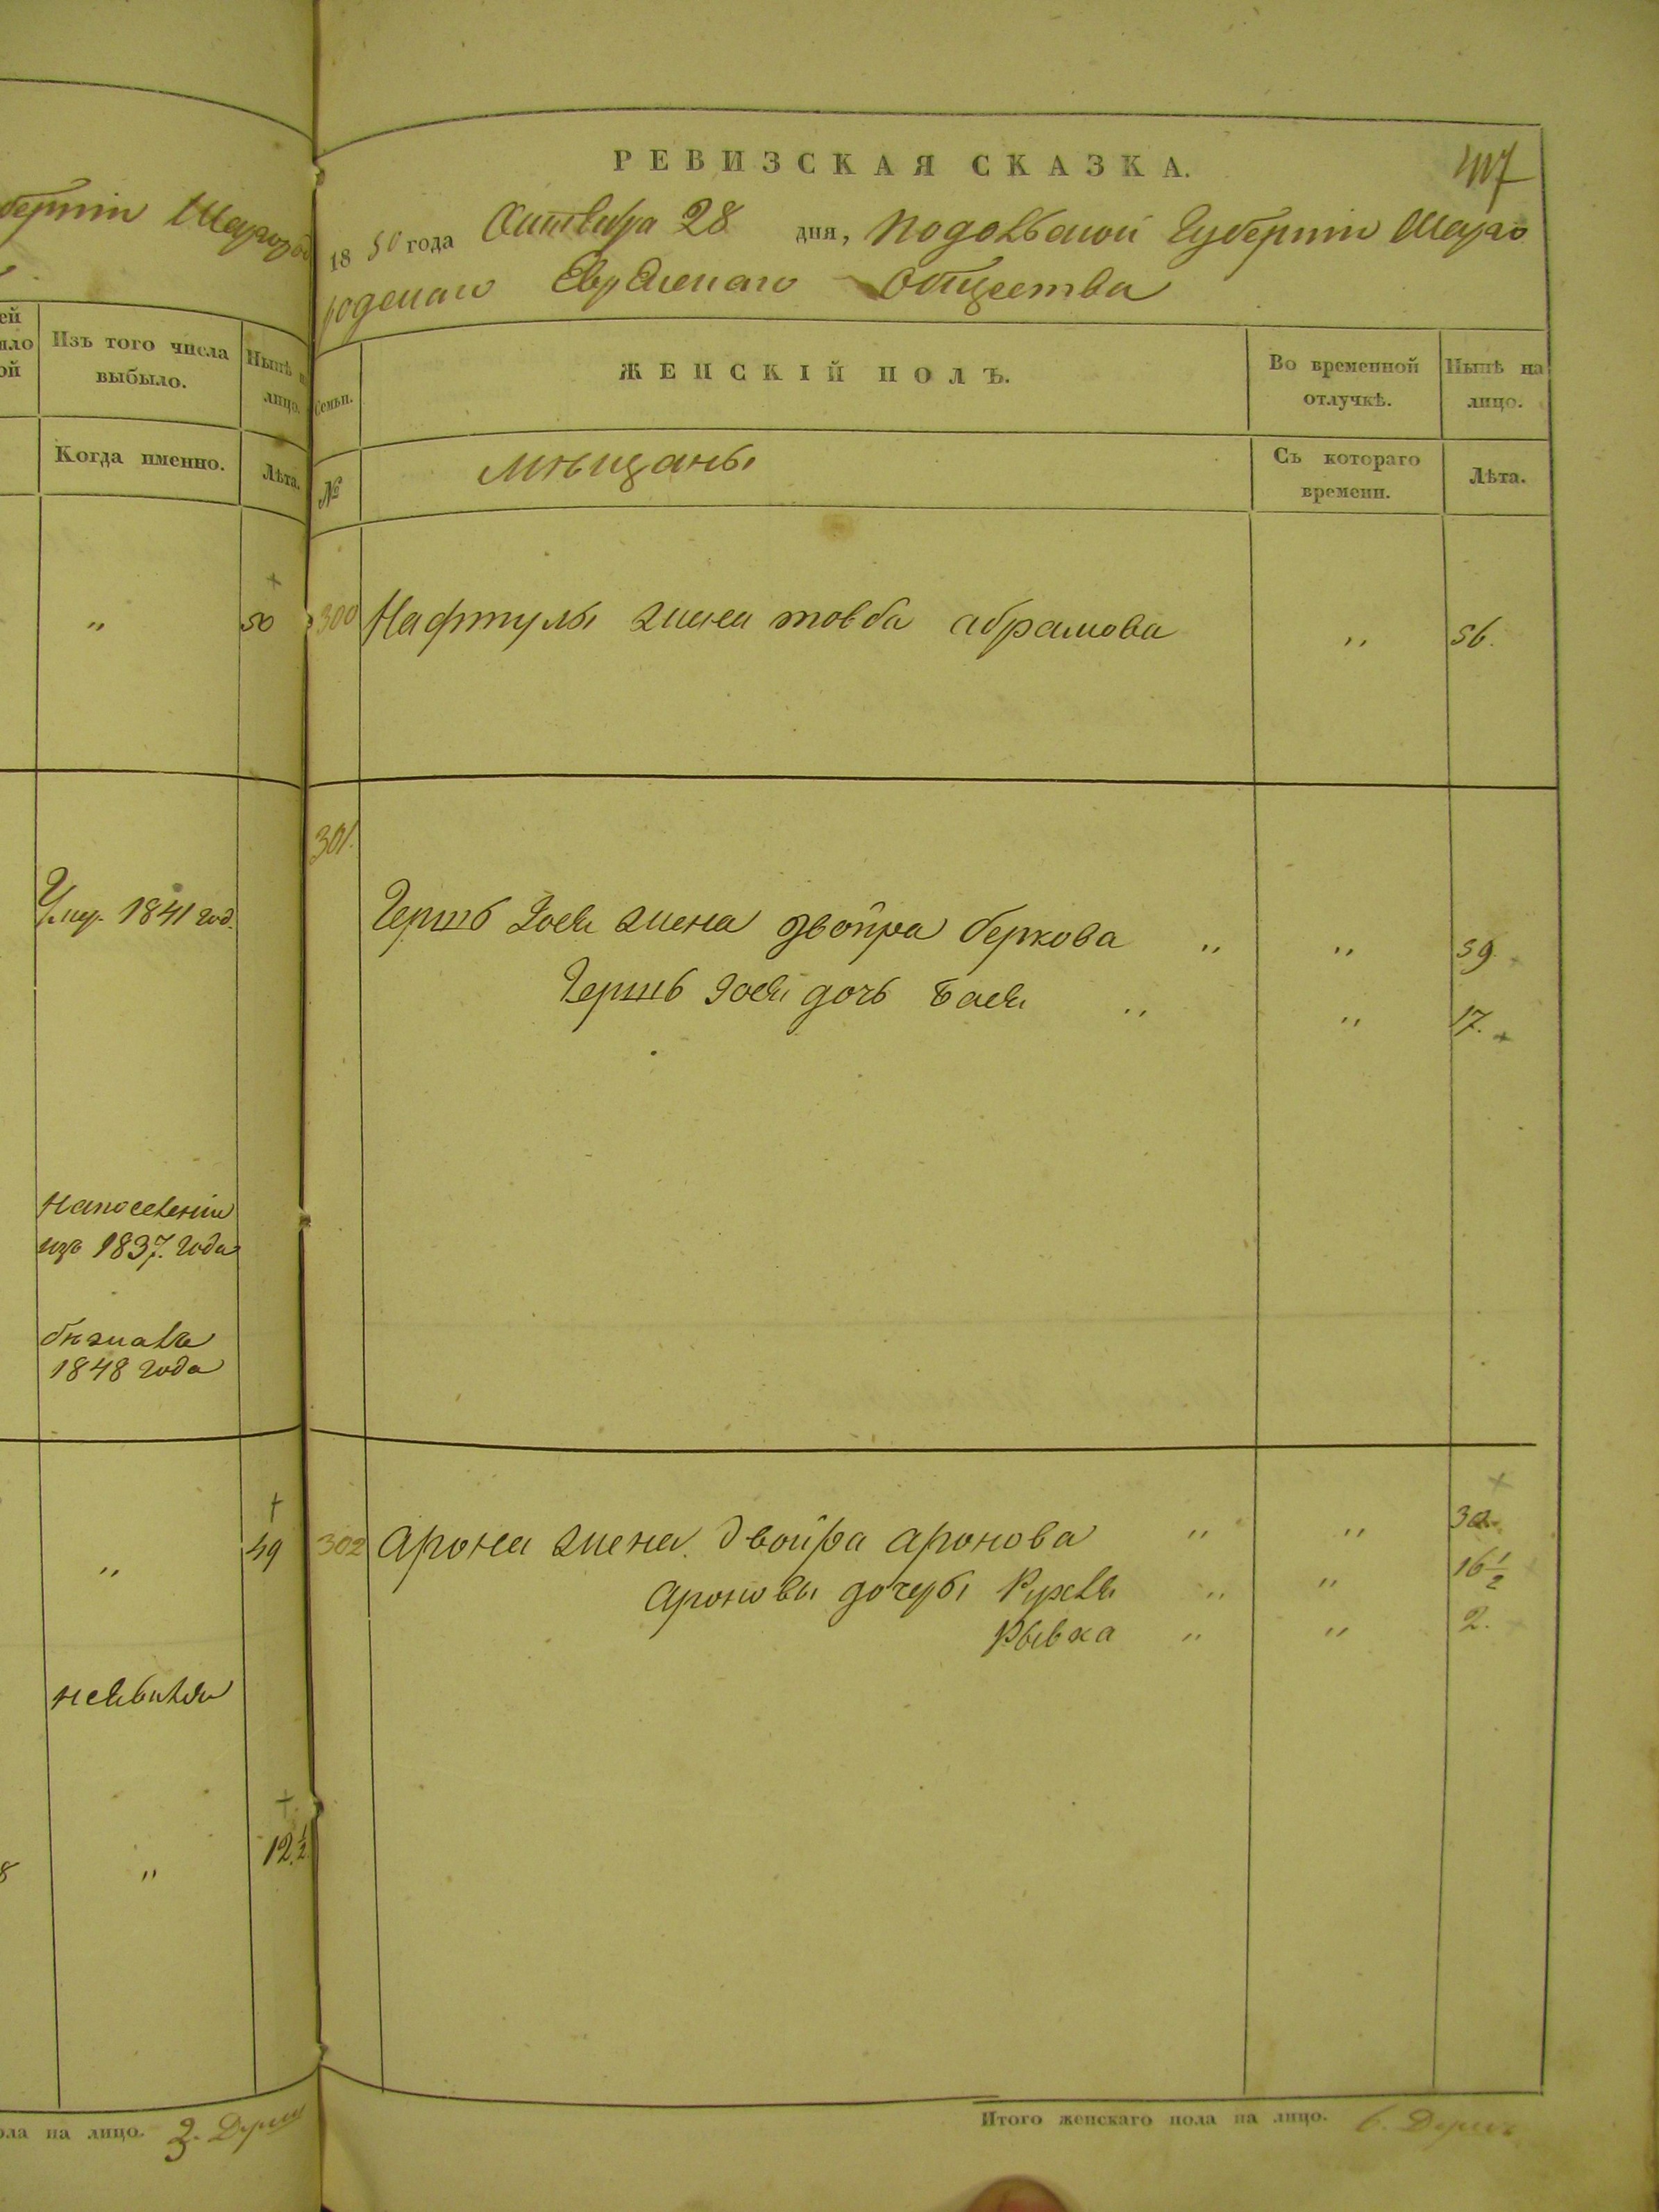 берніи Шаргород
Изъ того числа
выбыло.
Нынѣ
лицо.
Когда именно.
Лѣта.
„
50
Умер. 1841 год.
На поселеніи
изъ 1837. года
бѣжалъ
1848 года
„
49
неявился
„
12 ½
ла на лицо. 3. Души
РЕВИЗСКАЯ СКАЗКА.
1850 года Октября 28 дня, Подольской Губерніи Шарго
родскаго Еврейскаго Общества
Семьи.
ЖЕНСКІЙ ПОЛЪ.
Во временной
отлучкѣ.
Нынѣ на
лицо.
№
мѣщаны
Съ котораго
времени.
Лѣта.
300 Нафтулы жена товба абрамова „ 56.
301.
Гершъ жена двойра беркова „ „ 59.
Гершъ дочь „ „ 17.
302 Арона жена двойра аронова „ „ 30.
Ароновы дочери Рухля „ „ 16 ½
Рывка „ „ 2.
Итого женскаго пола на лицо. 6. Душъ